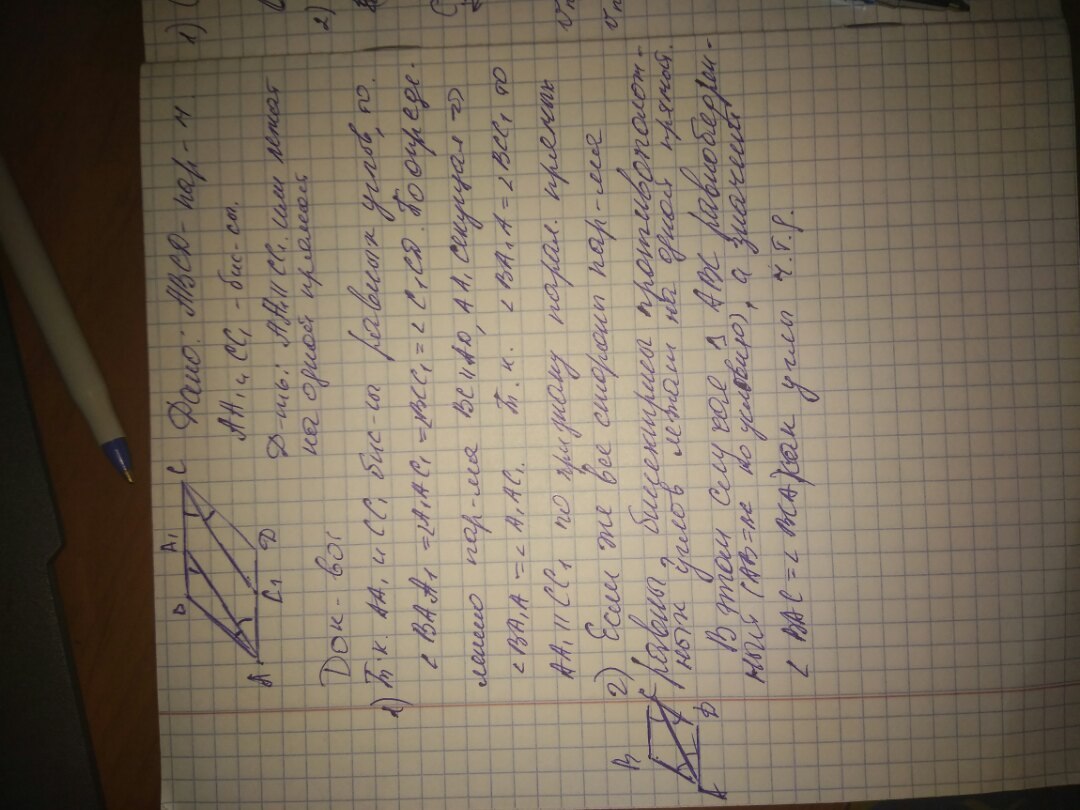 Дано: ABCD - пар-м
AA₁ и CC₁ - бис-сы.
Д-ть: AA₁ || CC₁ или лежат
на одной прямой
B A₁ C
A C₁ D
Док-во:
1) Т.к. AA₁ и CC₁ бис-сы равных углов, то
∠BAA₁ = ∠A₁AC₁ = ∠BCC₁ = ∠C₁CD. По опреде-
лению пар-ма BC || AD, AA₁ секущая =>
∠BA₁A = ∠A₁AC₁. Т.к. ∠BA₁A = ∠BCC₁ то
AA₁ || CC₁ по признаку парал. прямых
2) Если же все стороны пар-ма
равны биссектрисы противополож-
ных углов лежат на одной прямой.
В этом случае △ ABC равнобедрен-
ный (AB = по условию), а значит
∠ BAC = ∠ BCA) как углы ч.т.д.
B C
A D
1)
2)